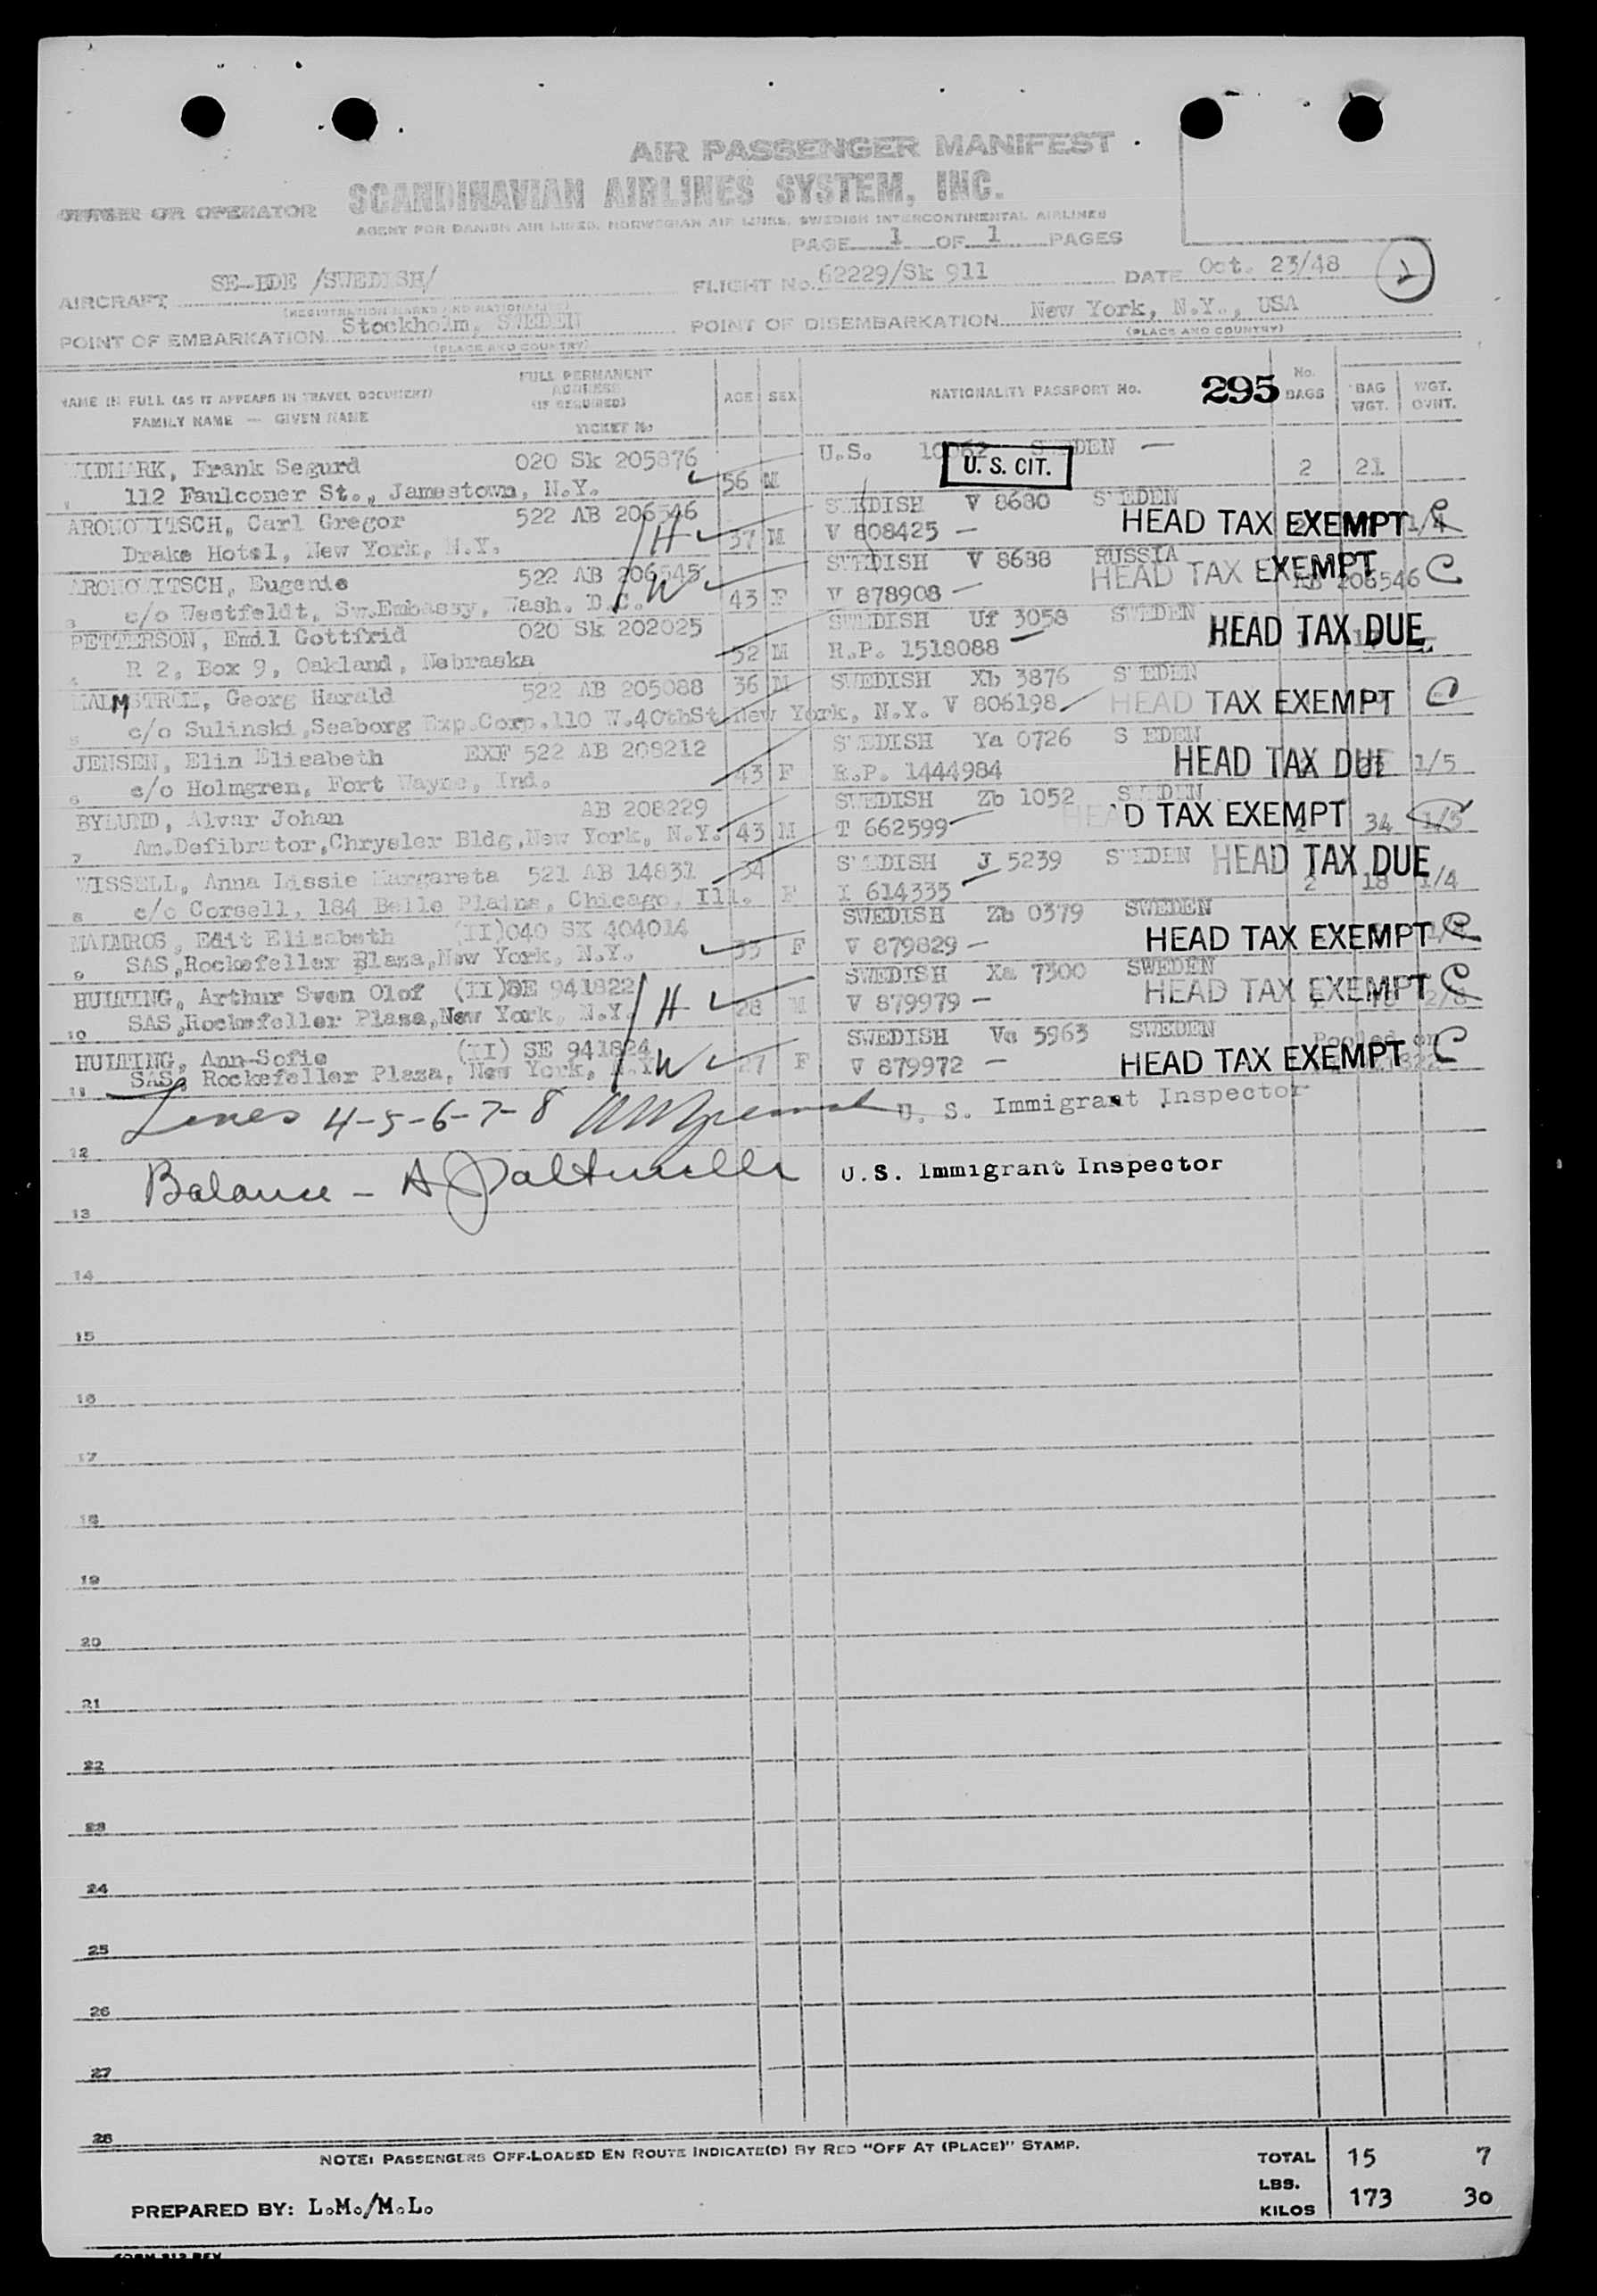 AIR PASSENGER MANIFEST
OWNER OR OPERATOR SCANDINAVIAN AIRLINES SYSTEM, INC.
AGENT FOR DANISH AIR LINES, NORWEGIAN AIR LINES, SWEDISH INTERCONTINENTAL AIRLINES
PAGE 1 OF 1 PAGES
AIRCRAFT SE-BDE /SWEDISH/ FLIGHT No. 62229/Sk 911 DATE Oct. 23/48
(REGISTRATION MARKS AND NATIONALITY)
POINT OF EMBARKATION Stockholm, SWEDEN POINT OF DISEMBARKATION New York, N.Y., USA
(PLACE AND COUNTRY) (PLACE AND COUNTRY)
NAME IN FULL (AS IT APPEARS IN TRAVEL DOCUMENT) FULL PERMANENT ADDRESS (IF REQUIRED) AGE SEX NATIONALITY PASSPORT No. 295 No. BAGS BAG WGT. WGT. OVHT.
FAMILY NAME — GIVEN NAME TICKET No
WIDMARK, Frank Segurd 020 Sk 205876 U.S. SWEDEN —
112 Faulconer St., Jamestown, N.Y. 56 M U. S. CIT. 2 21
ARONOWITSCH, Carl Gregor 522 AB 206546 SWEDISH V 8680 SWEDEN
Drake Hotel, New York, N.Y. H 37 M V 808425 — HEAD TAX EXEMPT 1/4 C
ARONOWITSCH, Eugenie 522 AB 206545 SWEDISH V 8688 RUSSIA
3 c/o Westfeldt, Sw.Embassy, Wash. D.C. W 43 F V 878908 — HEAD TAX EXEMPT AB 206546 C
PETTERSON, Emil Gottfrid 020 Sk 202025 SWEDISH Uf 3058 SWEDEN
4 R 2, Box 9, Oakland, Nebraska 52 M R.P. 1518088 HEAD TAX DUE
MALMSTROM, Georg Harald 522 AB 205088 36 M SWEDISH Xb 3876 SWEDEN
5 c/o Sulinski,Seaborg Exp.Corp.110 W.40thSt New York, N.Y. V 806198 HEAD TAX EXEMPT C
JENSEN, Elin Elisabeth EXF 522 AB 208212 SWEDISH Ya 0726 SWEDEN
6 c/o Holmgren, Fort Wayne, Ind. 43 F R.P. 1444984 HEAD TAX DUE 1/5
BYLUND, Alvar Johan AB 208229 SWEDISH Zb 1052 SWEDEN
7 Am.Defibrator,Chrysler Bldg,New York, N.Y. 43 M T 662599 HEAD TAX EXEMPT 34 1/5
WISSELL, Anna Lissie Margareta 521 AB 14831 34 SWEDISH J 5239 SWEDEN HEAD TAX DUE
8 c/o Corsell, 184 Belle Plaine, Chicago, Ill. F I 614335 2 18 1/4
MALMROS, Edit Elisabeth (II)040 SK 404014 SWEDISH Zb 0379 SWEDEN
9 SAS,Rockefeller Plaza,New York, N.Y. 33 F V 879829 — HEAD TAX EXEMPT C
HULTING, Arthur Sven Olof (II)SE 941822 SWEDISH Xa 7300 SWEDEN
10 SAS,Rockefeller Plaza,New York, N.Y. H 28 M V 879979 — HEAD TAX EXEMPT 2/8 C
HULTING, Ann-Sofie (II) SE 941824 SWEDISH Va 5963 SWEDEN Pooled on
11 SAS, Rockefeller Plaza, New York, N.Y. W 27 F V 879972 — HEAD TAX EXEMPT C
Lines 4-5-6-7-8 U. S. Immigrant Inspector
12
Balance - U.S. Immigrant Inspector
13
14
15
16
17
18
19
20
21
22
23
24
25
26
27
28
NOTE: PASSENGERS OFF-LOADED EN ROUTE INDICATE(D) BY RED "OFF AT (PLACE)" STAMP.
TOTAL 15 7
LBS.
KILOS 173 30
PREPARED BY: L.M./M.L.